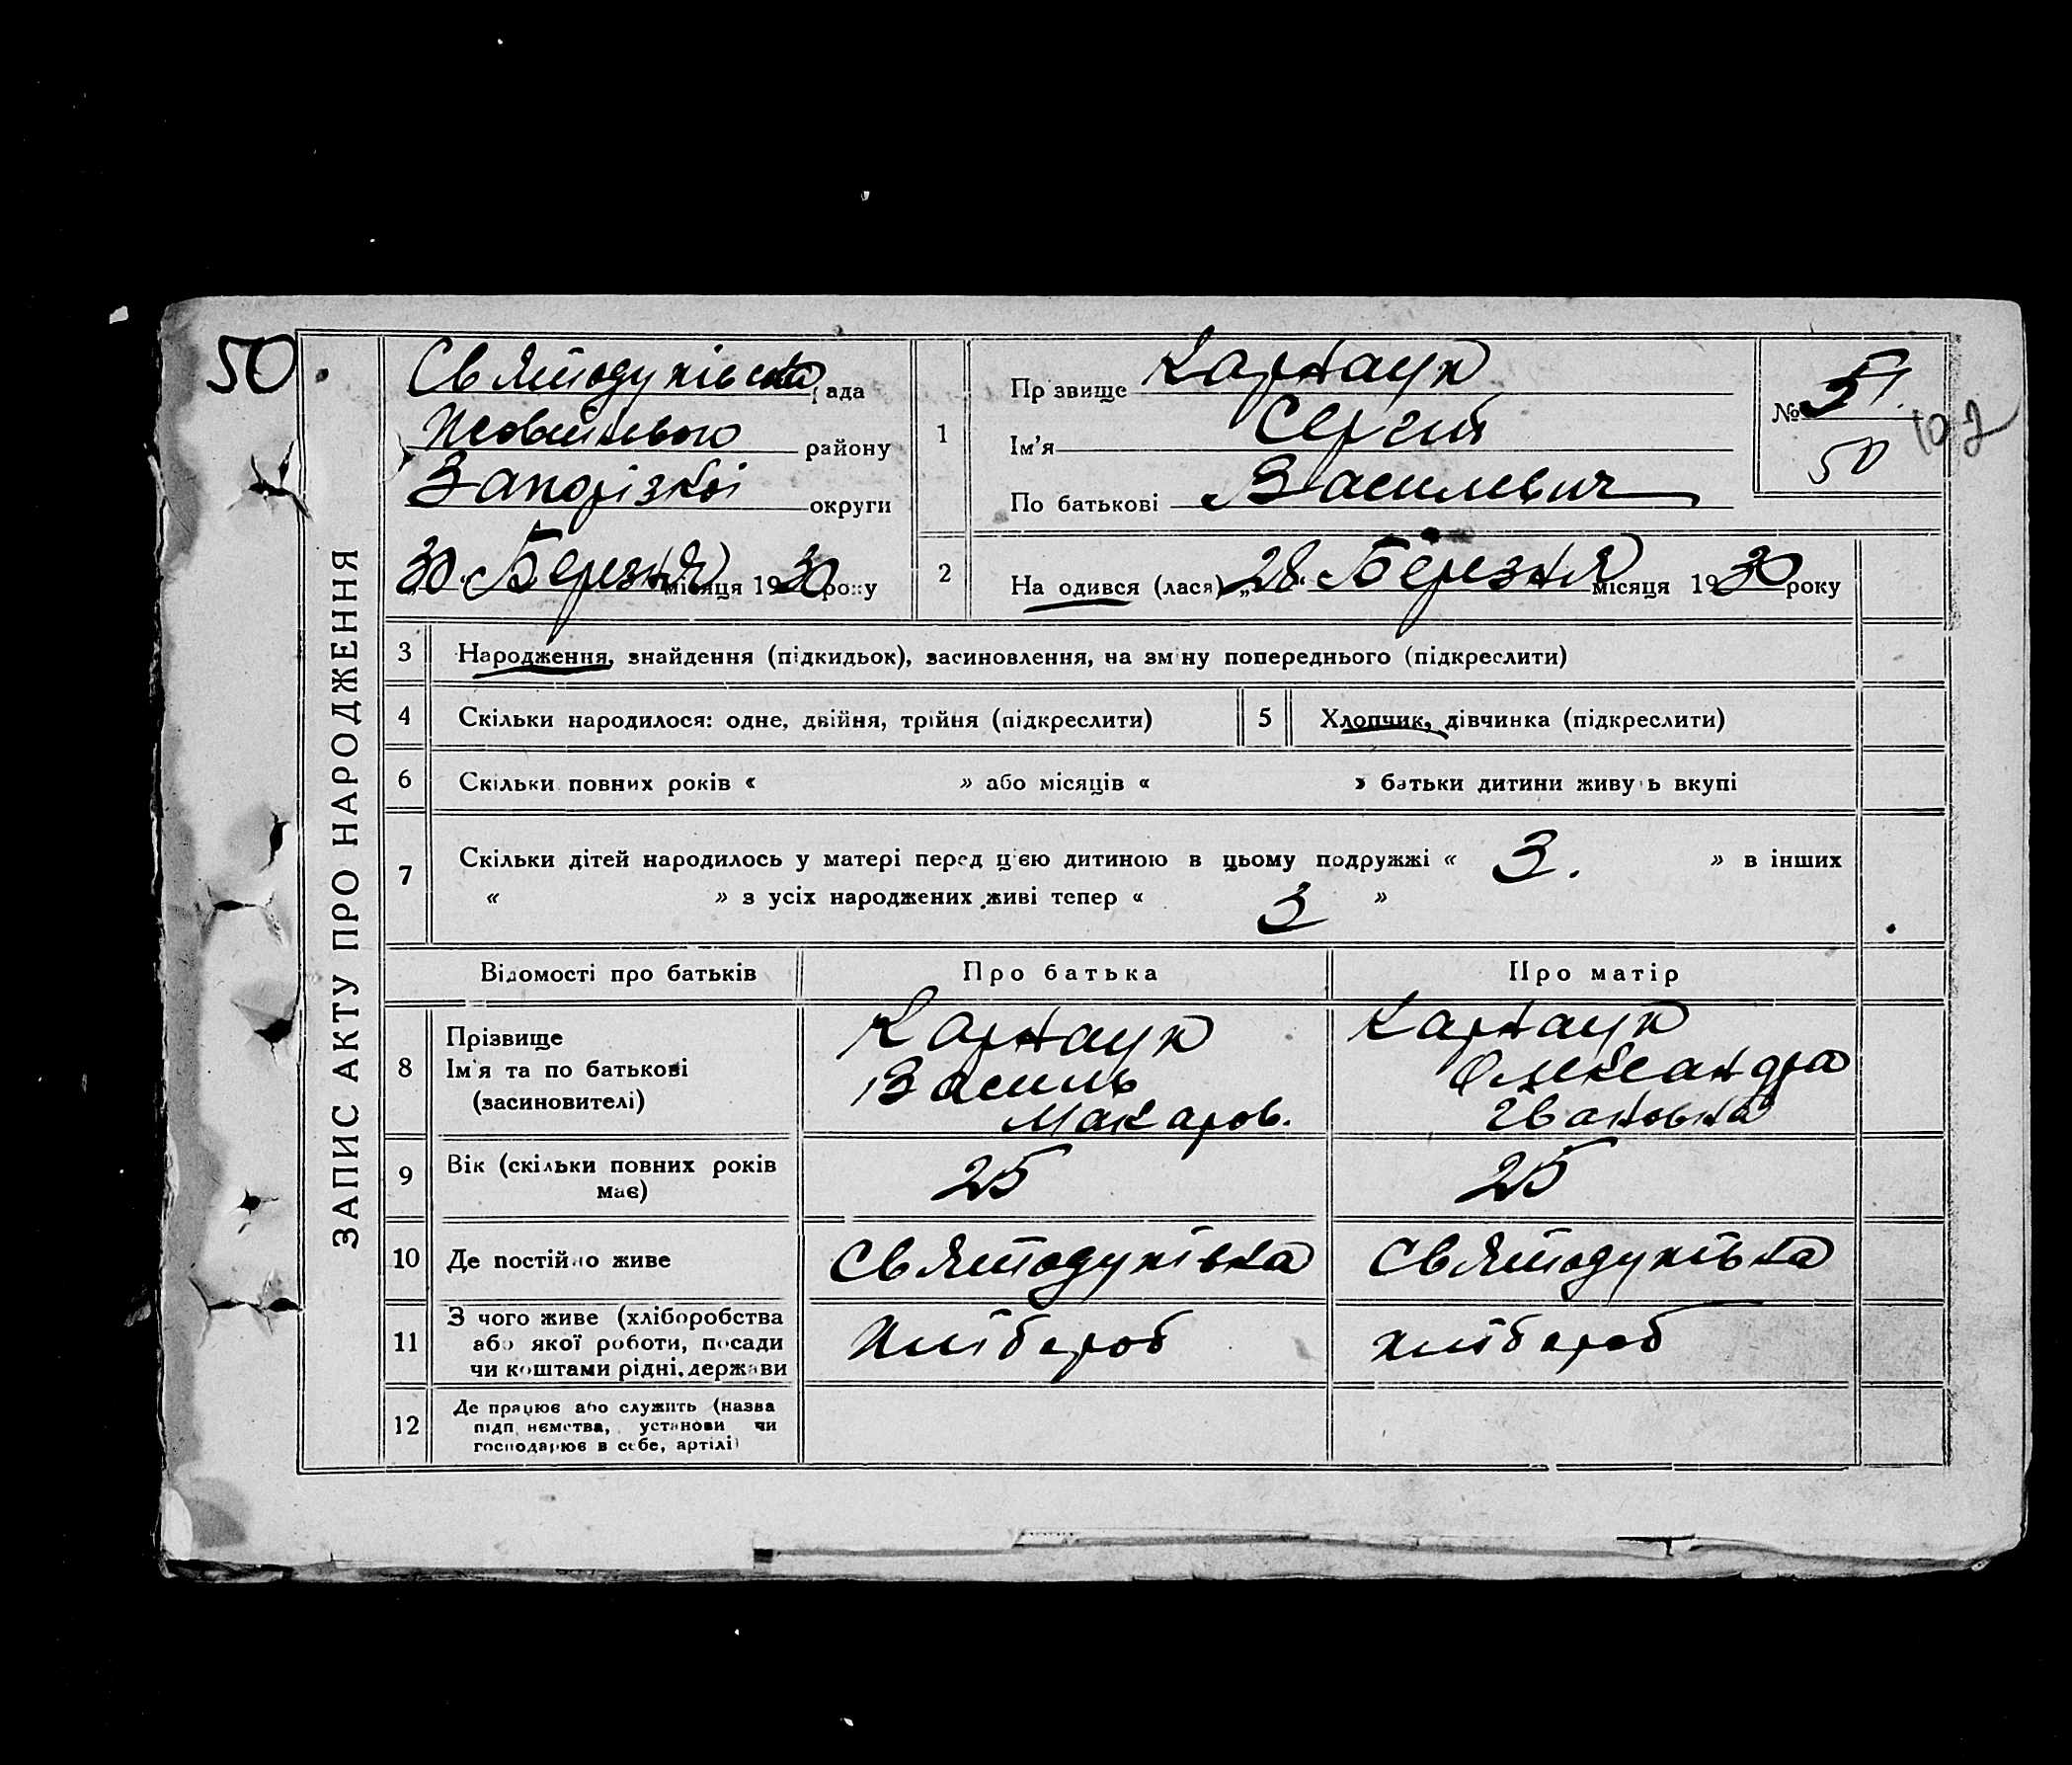 50
ЗАПИС АКТУ ПРО НАРОДЖЕННЯ
Святодухівська рада
району
Запорізкої округи
30 Березня місяця 1930 року
1
Прізвище Карнаух
Ім'я Сергій
По батькові Василевич
№ 51.
50
102
2 Народився (лася) „28" Березня місяця 1930 року
3 Народження, знайдення (підкидьок), засиновлення, на зміну попереднього (підкреслити)
4 Скільки народилося: одне, двійня, трійня (підкреслити)
5 Хлопчик, дівчинка (підкреслити)
6 Скільки повних років « » або місяців « » батьки дитини живуть вкупі
7 Скільки дітей народилось у матері перед цією дитиною в цьому подружжі « 3. » в інших
« » з усіх народжених живі тепер « 3 »
Відомості про батьків Про батька Про матір
8
Прізвище
Ім'я та по батькові
(засиновителі)
Карнаух
Василь
Макаров.
Карнаух
Олександра
Івановна
9 Вік (скільки повних років
має)
25
25
10 Де постійно живе Святодухівка Святодухівка
11
З чого живе (хліборобства
або якої роботи, посади
чи коштами рідні, держави
Хлібороб
хлібороб
12
Де працює або служить (назва
підприємства, установи чи
господарює в себе, артілі)